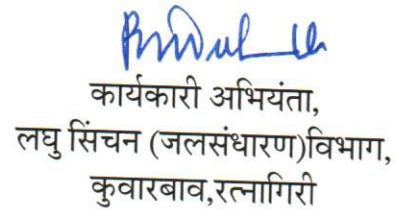 कार्यकारी अभियंता,
लघु सिंचन (जलसंधारण)विभाग,
कुवारबाव,रत्नागिरी